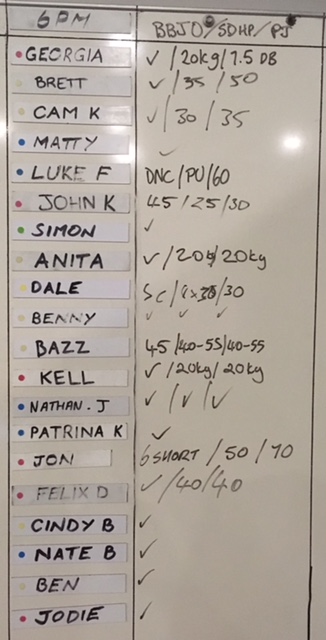 6PM BBJO / SDHP / PJ
GEORGIA ✓ / 20kg / 7.5 DB
BRETT ✓ / 35 / 50
CAM K ✓ / 30 / 35
MATTY ✓
LUKE F DNC / PU / 60
JOHN K 45 / 25 / 30
SIMON ✓
ANITA ✓ / 20kg / 20kg
DALE Sc / 30
BENNY ✓ ✓ ✓
BAZZ 45 / 40-55 / 40-55
KELL ✓ / 20kg / 20kg
NATHAN. J ✓ / ✓ / ✓
PATRINA K ✓
JON 6 SHORT / 50 / 70
FELIX D ✓ / 40 / 40
CINDY B ✓
NATE B ✓
BEN ✓
JODIE ✓